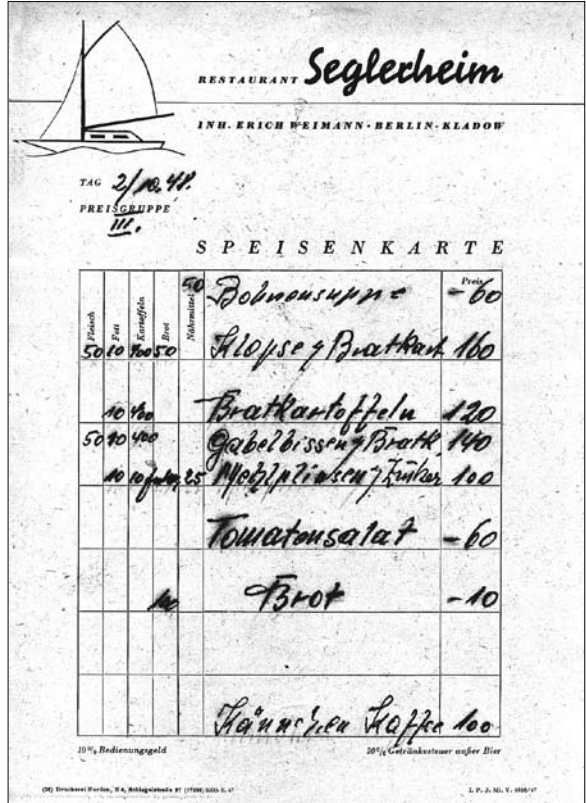 RESTAURANT Seglerheim
INH. ERICH WEIMANN · BERLIN-KLADOW
TAG 2/10.48.
PREISGRUPPE
III.
SPEISENKARTE
Fleisch Fett Kartoffeln Brot Nährmittel Preis
50 Bohnensuppe -60
50 10 400 50 Klopse, Bratkart 160
10 400 Bratkartoffeln 120
50 10 400 Gabelbissen, Bratk. 140
10 10 25 Mehlplinsen, Zucker 100
Tomatensalat -60
100 Brot -10
Kännchen Kaffee 100
10% Bedienungsgeld 20% Getränkesteuer außer Bier
Druckerei Norden, N 4, Schlegelstraße